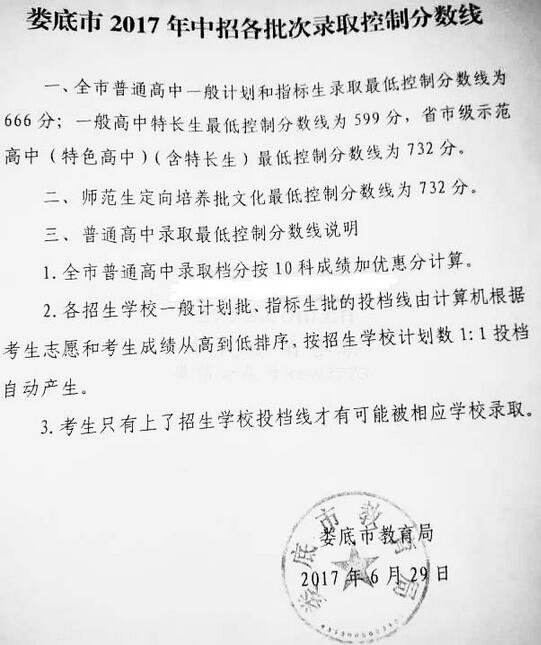 娄底市 2017 年中招各批次录取控制分数线
一、全市普通高中一般计划和指标生录取最低控制分数线为
666 分；一般高中特长生最低控制分数线为 599 分，省市级示范
高中（特色高中）（含特长生）最低控制分数线为 732 分。
二、师范生定向培养批文化最低控制分数线为 732 分。
三、普通高中录取最低控制分数线说明
1.全市普通高中录取档分按 10 科成绩加优惠分计算。
2.各招生学校一般计划批、指标生批的投档线由计算机根据
考生志愿和考生成绩从高到低排序，按招生学校计划数 1:1 投档
自动产生。
3.考生只有上了招生学校投档线才有可能被相应学校录取。
娄底市教育局
娄底市教育局
2017 年 6 月 29 日